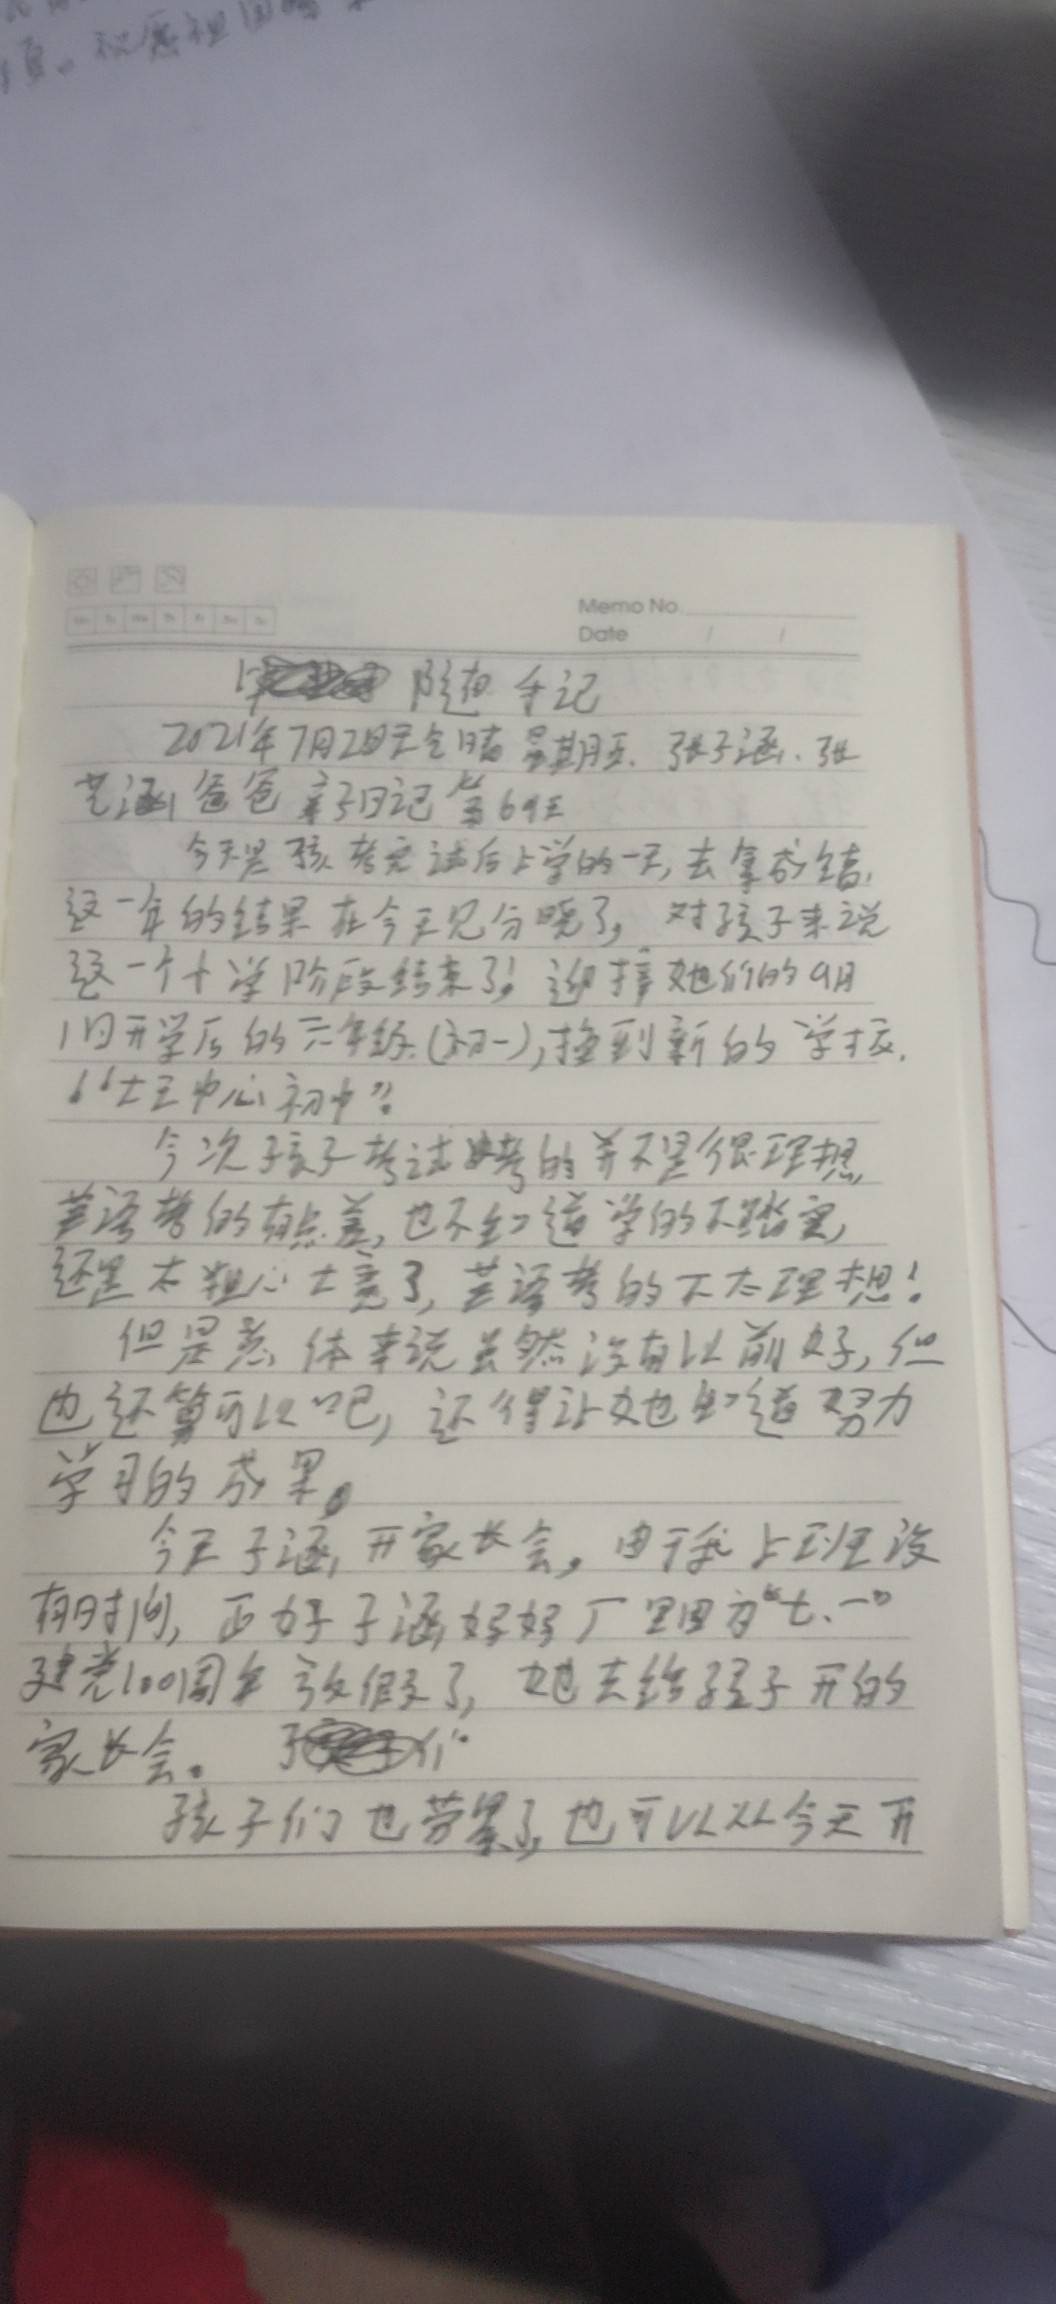 祝愿祖国
Memo No.
Date / /
随想手记
2021年7月2日天气晴 星期五. 张子涵、张
艺涵爸爸亲子日记第69天
今天是孩考完试后上学的一天,去拿成绩,
这一年的结果在今天见分晓了,对孩子来说
这一个小学阶段结束了,迎接她们的9月
1日开学后的六年级(初一),换到新的学校,
"大王中心初中"。
今次孩子考试考的并不是很理想,
英语考的有点差,也不知道学的不踏实,
还是太粗心大意了,英语考的不太理想!
但是总体来说虽然没有以前好,但
也还算可以吧,还得让她知道努力
学习的成果。
今天子涵开家长会。由于我上班没
有时间,正好子涵妈妈厂里因为"七、一"
建党100周年放假了,她去给孩子开的
家长会。
孩子们也劳累了,也可以从今天开